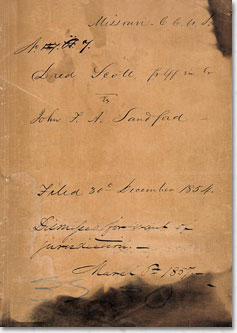 Missouri C. C. U. S.
No. 7
Dred Scott Pltff in Er
vs
John F. A. Sandford
Filed 30th December 1854.
Dismissed for want of
jurisdiction. —
March 6th 1857. —